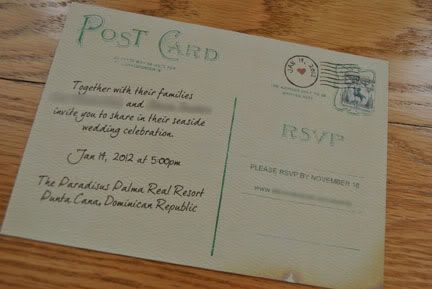 POST CARD
Together with their families
and
invite you to share in their seaside
wedding celebration.
Jan 14, 2012 at 5:00pm
The Paradisus Palma Real Resort
Punta Cana, Dominican Republic
JAN 14, 2012
RSVP
PLEASE RSVP BY NOVEMBER 18
WWW.